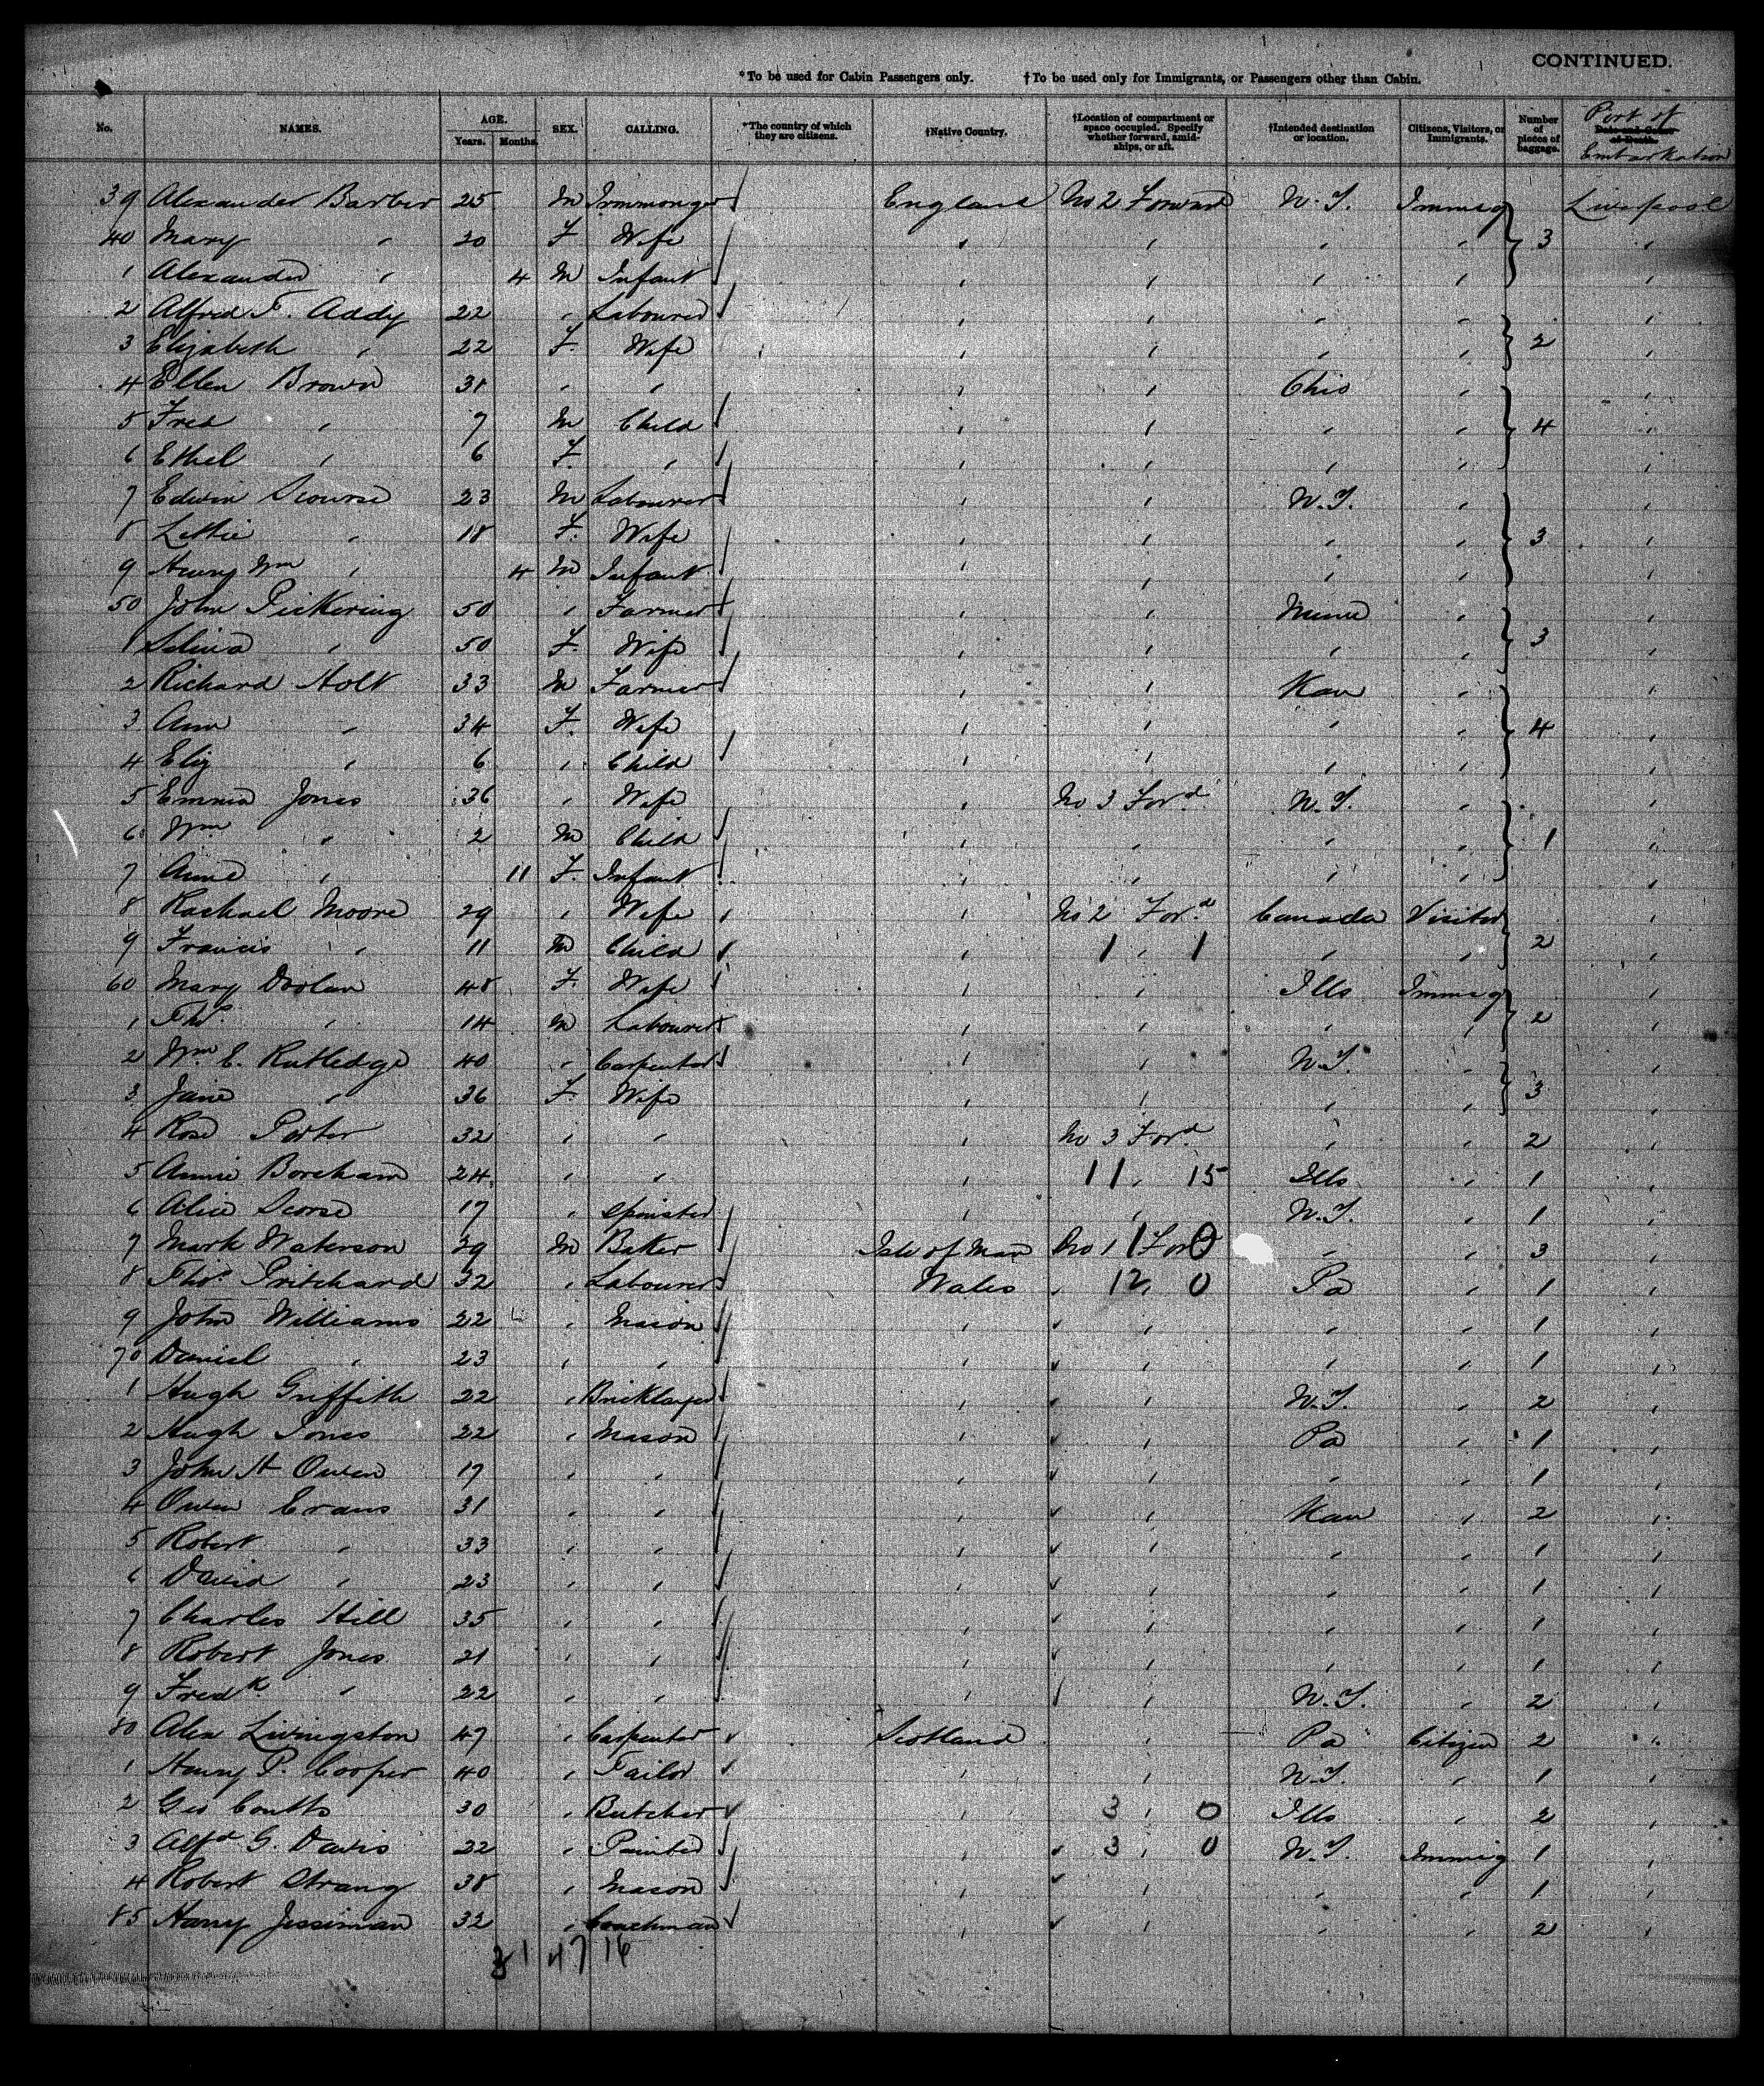 CONTINUED.
*To be used for Cabin Passengers only. †To be used only for Immigrants, or Passengers other than Cabin.
No. NAMES. AGE. Years. Months. SEX. CALLING. *The country of which they are citizens. †Native Country. †Location of compartment or space occupied. Specify whether forward, amidships, or aft. †Intended destination or location. Citizens, Visitors, or Immigrants. Number of pieces of baggage. Date and Cause of Death. Port of Embarkation
39 Alexander Barber 25 M Ironmonger England No 2 Forward N.Y. Immig Liverpool
40 Mary " 20 F Wife " " " " 3 "
1 Alexander " 4 M Infant " " " " "
2 Alfred F. Addy 22 " Labourer " " " " "
3 Elizabeth " 22 F. Wife " " " " 2 "
4 Ellen Brown 31 " " " " Ohio " "
5 Fred " 7 M Child " " " " 4 "
6 Ethel " 6 F. " " " " " "
7 Edwin Scourse 23 M Labourer " " N.Y. " "
8 Lettie " 18 F. Wife " " " " 3 "
9 Henry Wm " 4 M Infant " " " " "
50 John Pickering 50 " Farmer " " Minn " "
1 Selina " 50 F. Wife " " " " 3 "
2 Richard Holt 33 M Farmer " " Kan " "
3 Ann " 34 F. Wife " " " " 4 "
4 Eliz " 6 " Child " " " " "
5 Emma Jones 36 " Wife " No 3 Ford N.Y. " "
6 Wm " 2 M Child " " " " 1 "
7 Anne " 11 F. Infant " " " " "
8 Rachael Moore 29 " Wife " No 2 Ford Canada Visitor "
9 Francis " 11 M Child " 1 " 1 " " 2 "
60 Mary Doolan 48 F. Wife " " Ills Immig "
1 Thos " 14 M Labourer " " " " 2 "
2 Wm E. Rutledge 40 " Carpenter " " N.Y. " "
3 Jane " 36 F. Wife " " " " 3 "
4 Rose Porter 32 " " " No 3 Ford " " 2 "
5 Annie Boreham 24 " " " 11 " 15 Ills " 1 "
6 Alice Scorse 17 " Spinster " " N.Y. " 1 "
7 Mark Waterson 29 M Baker Isle of Man No 1 1 For 0 " " 3 "
8 Thos Pritchard 32 " Labourer Wales " 12 " 0 Pa " 1 "
9 John Williams 22 " Mason " " " " 1 "
70 Daniel " 23 " " " " " " 1 "
1 Hugh Griffith 22 " Bricklayer " " N.Y. " 2 "
2 Hugh Jones 22 " Mason " " Pa " 1 "
3 John H Owen 17 " " " " " " 1 "
4 Owen Evans 31 " " " " Kan " 2 "
5 Robert " 33 " " " " " " 1 "
6 David " 23 " " " " " " 1 "
7 Charles Hill 35 " " " " " " 1 "
8 Robert Jones 21 " " " " " " 1 "
9 Fredk " 22 " " " " N.Y. " 2 "
80 Alex Livingston 47 " Carpenter Scotland " Pa Citizen 2 "
1 Henry P. Cooper 40 " Tailor " " N.Y. " 1 "
2 Geo Coutts 30 " Butcher " 3 " 0 Ills " 2 "
3 Alfd G. Davis 22 " Painter " 3 " 0 N.Y. Immig 1 "
4 Robert Strang 38 " Mason " " " " 1 "
85 Harry Jessiman 32 " Coachman " " " " 2 "
31 47 16